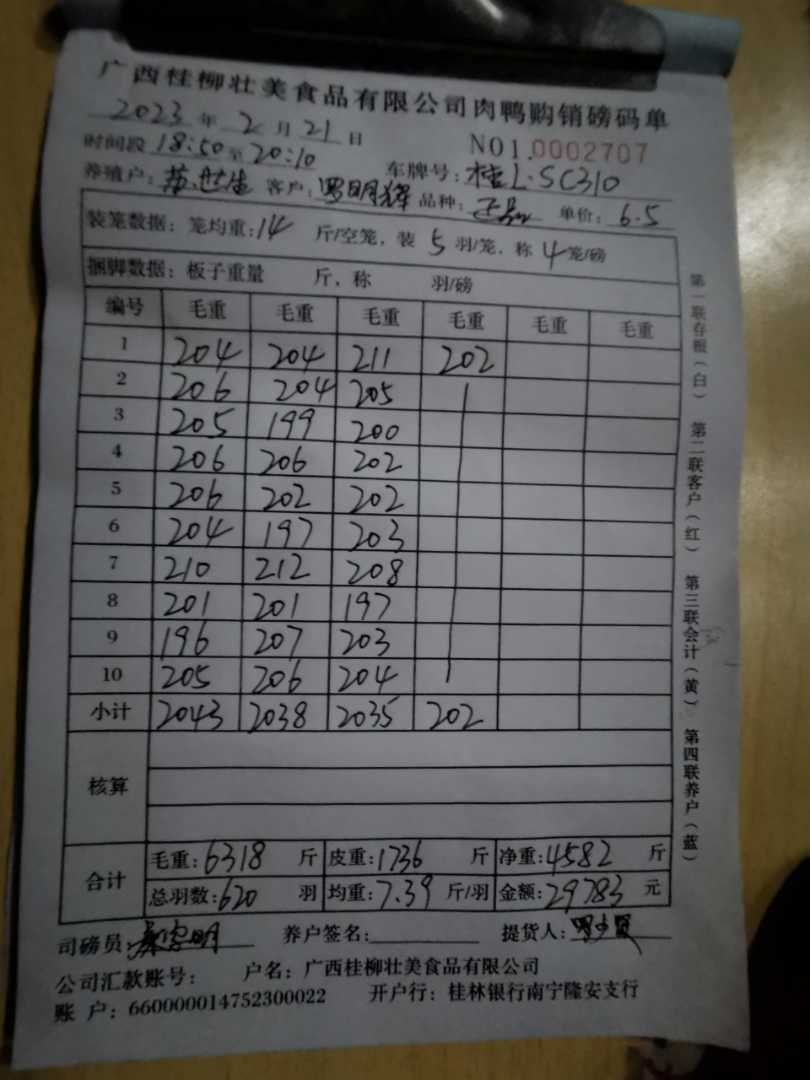 广西桂柳壮美食品有限公司肉鸭购销磅码单
2023 年 2 月 21 日 NO1.0002707
时间段 18:50 至 20:10 车牌号: 桂L·SC310
养殖户: 客户: 罗明辉 品种: 正品 单价: 6.5
装笼数据: 笼均重: 14 斤/空笼, 装 5 羽/笼, 称 4 笼/磅
捆脚数据: 板子重量 斤, 称 羽/磅
编号 毛重 毛重 毛重 毛重 毛重 毛重
1 204 204 211 202
2 206 204 205
3 205 199 200
4 206 206 202
5 206 202 202
6 204 197 203
7 210 212 208
8 201 201 197
9 196 207 203
10 205 206 204
小计 2043 2038 2035 202
核算
合计 毛重: 6318 斤 皮重: 1736 斤 净重: 4582 斤
总羽数: 620 羽 均重: 7.39 斤/羽 金额: 29783 元
司磅员: 养户签名: 提货人:
公司汇款账号: 户名: 广西桂柳壮美食品有限公司
账 户: 660000014752300022 开户行: 桂林银行南宁隆安支行
第一联存根(白) 第二联客户(红) 第三联会计(黄) 第四联养户(蓝)